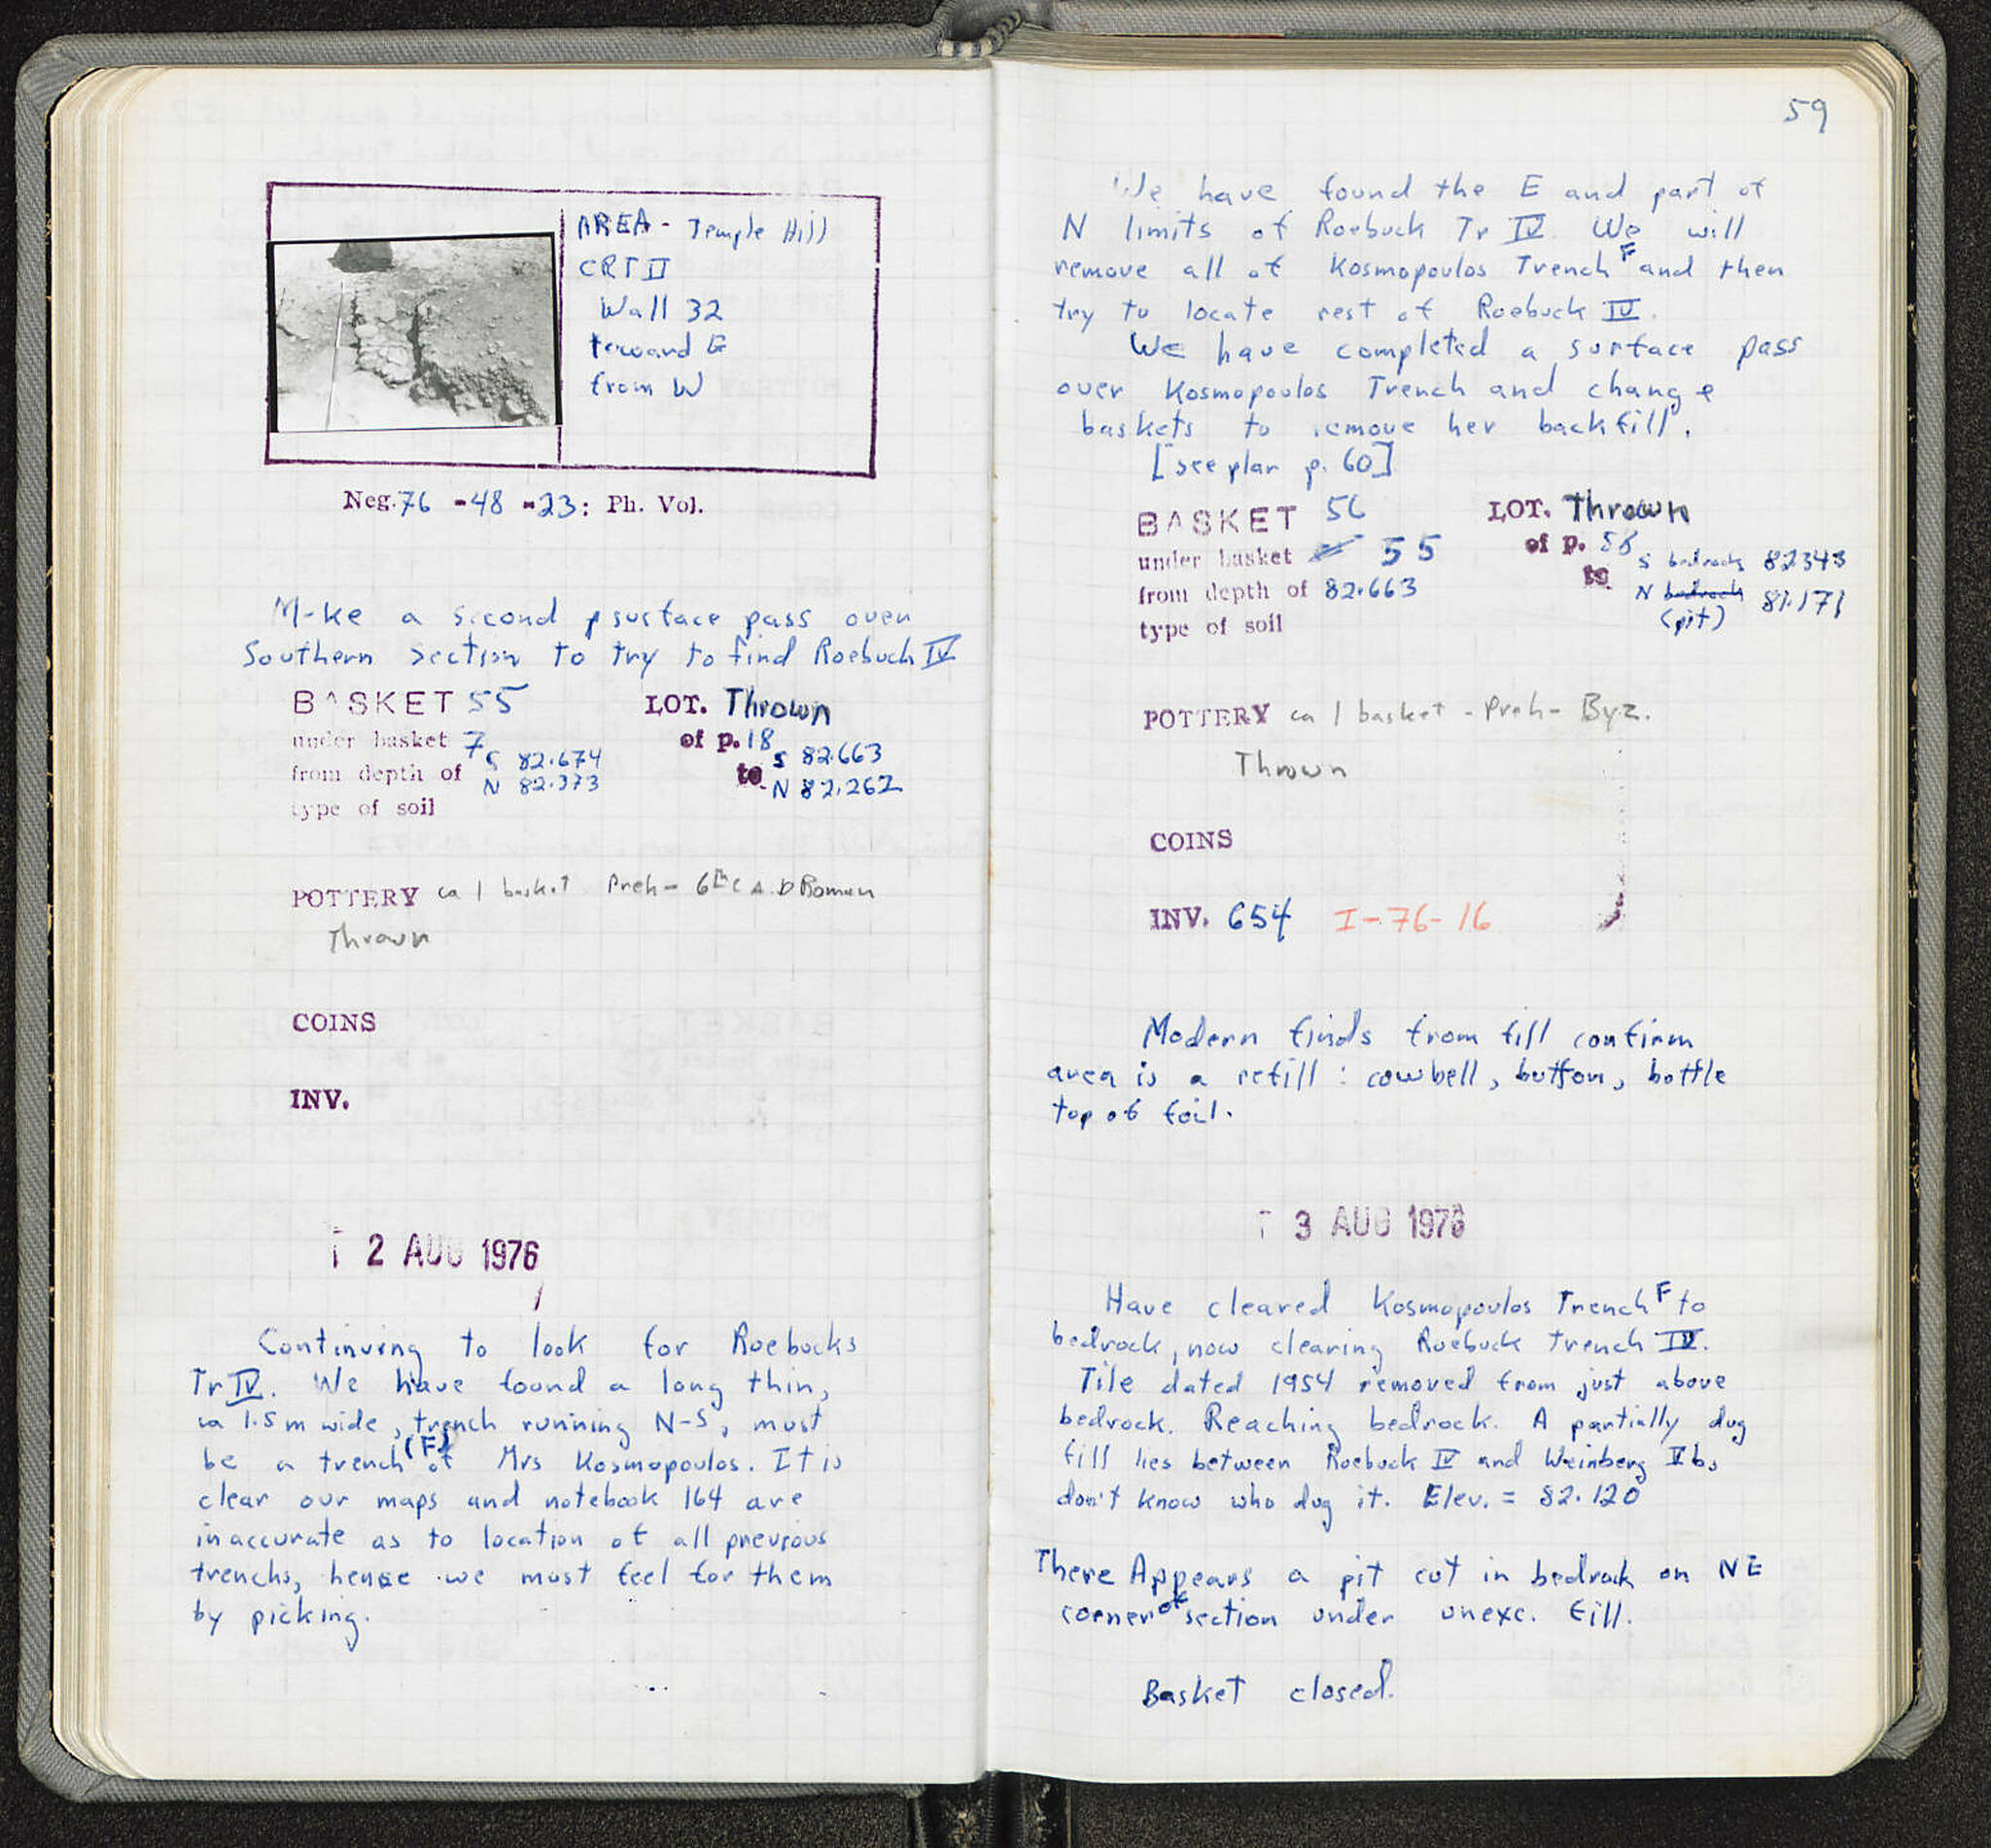 AREA - Temple Hill
CRT II
Wall 32
toward E
from W
Neg. 76 - 48 - 23: Ph. Vol.
Make a second surface pass over
Southern section to try to find Roebuck IV
BASKET 55 LOT. Thrown
under basket 7 of p. 18
from depth of S 82.674 N 82.373 to S 82.663 N 82.262
type of soil
POTTERY ca 1 basket Preh - 6th c A.D Roman
Thrown
COINS
INV.
2 AUG 1976
Continuing to look for Roebucks
Tr IV. We have found a long thin,
ca 1.5 m wide, trench running N-S, must
be a trench (F) of Mrs Kosmopoulos. It is
clear our maps and notebook 164 are
inaccurate as to location of all previous
trenchs, hence we must feel for them
by picking.
59
We have found the E and part of
N limits of Roebuck Tr IV. We will
remove all of Kosmopoulos Trench F and then
try to locate rest of Roebuck IV.
We have completed a surface pass
over Kosmopoulos Trench and change
baskets to remove her backfill.
[see plan p. 60]
BASKET 56 LOT. Thrown
under basket 55 of p. 58
from depth of 82.663 to S bedrock 82343
N bedrock (pit) 81.171
type of soil
POTTERY ca 1 basket - Preh - Byz.
Thrown
COINS
INV. 654 I-76-16
Modern finds from fill confirm
area is a refill : cowbell, button, bottle
top of foil.
3 AUG 1976
Have cleared Kosmopoulos Trench F to
bedrock, now clearing Roebuck trench IV.
Tile dated 1954 removed from just above
bedrock. Reaching bedrock. A partially dug
fill lies between Roebuck IV and Weinberg Vb,
don't know who dug it. Elev. = 82.120
There Appears a pit cut in bedrock on NE
corner of section under unexc. fill.
Basket closed.